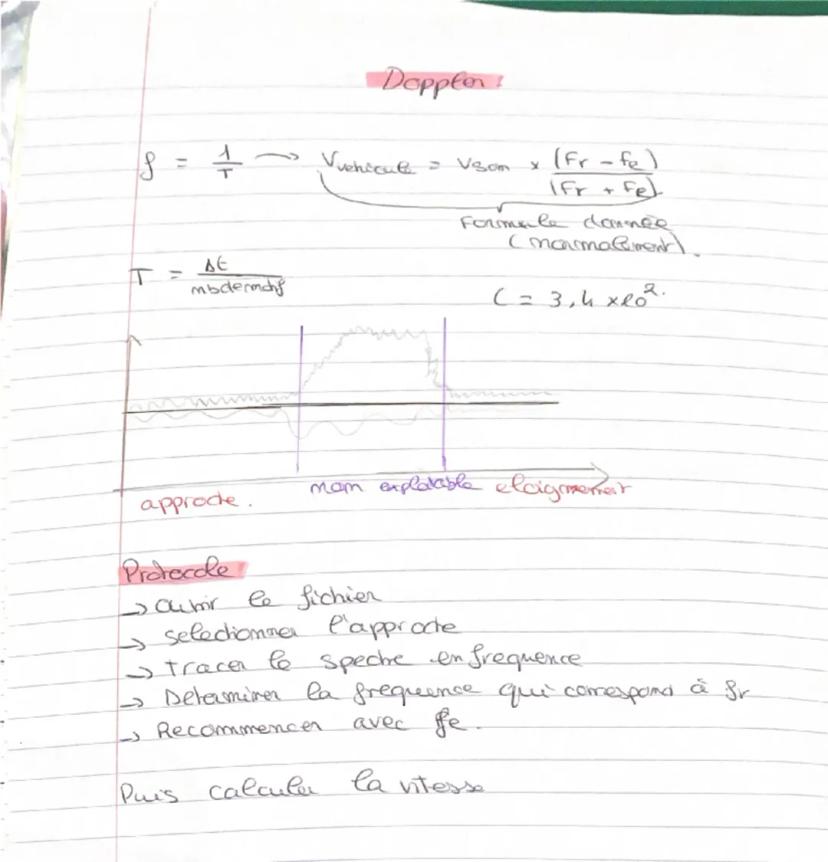 Doppler :
f = 1/T → Vvehicule = Vson × (Fr - fe)/(Fr + Fe).
Formule donnée
(normalement).
T = Δt/nbdemotif
C = 3,4 × 10².
approche. non exploitable eloignement
Protocole
→ ouvrir le fichier
→ selectionner l'approche
→ tracer le spectre en frequence
→ Determiner la frequence qui correspond à fr
→ Recommencer avec fe.
Puis calculer la vitesse